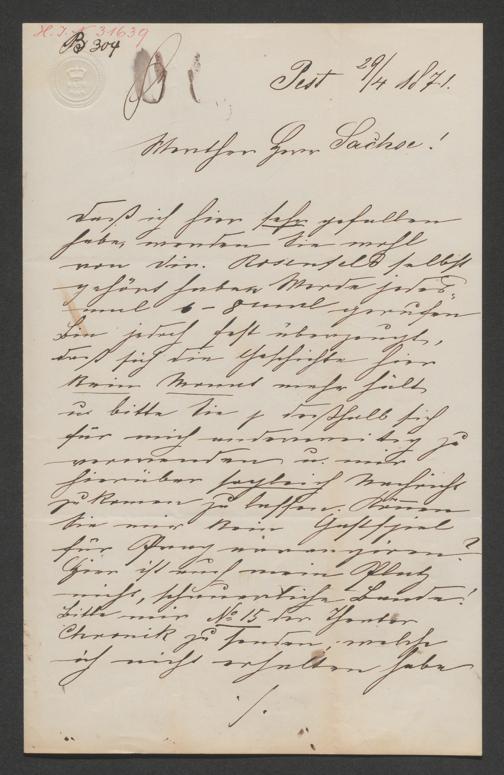 H. I. N. 31639
B 304
Pest 29/4 1871.
Werther Herr Sachse!
Daß ich hier sehr gefallen
habe, werden Sie wohl
von Dir. Rosenfeld selbst
gehört haben. Werde jedes-
mal 6 – 8 mal gerufen
bin jedoch fest überzeugt,
daß sich die Geschichte hier
kein Monat mehr hält
u. bitte Sie deßhalb sich
für mich anderweitig zu
verwenden u. mir
hierüber sogleich Nachricht
zukomen zu lassen. Können
Sie mir kein Gastspiel
für Prag arrangiren?
Hier ist auch mein Platz
nicht, schauerliche Bande!
Bitte mir No 15 der Theater
Chronik zu senden, welche
ich nicht erhalten habe
./.